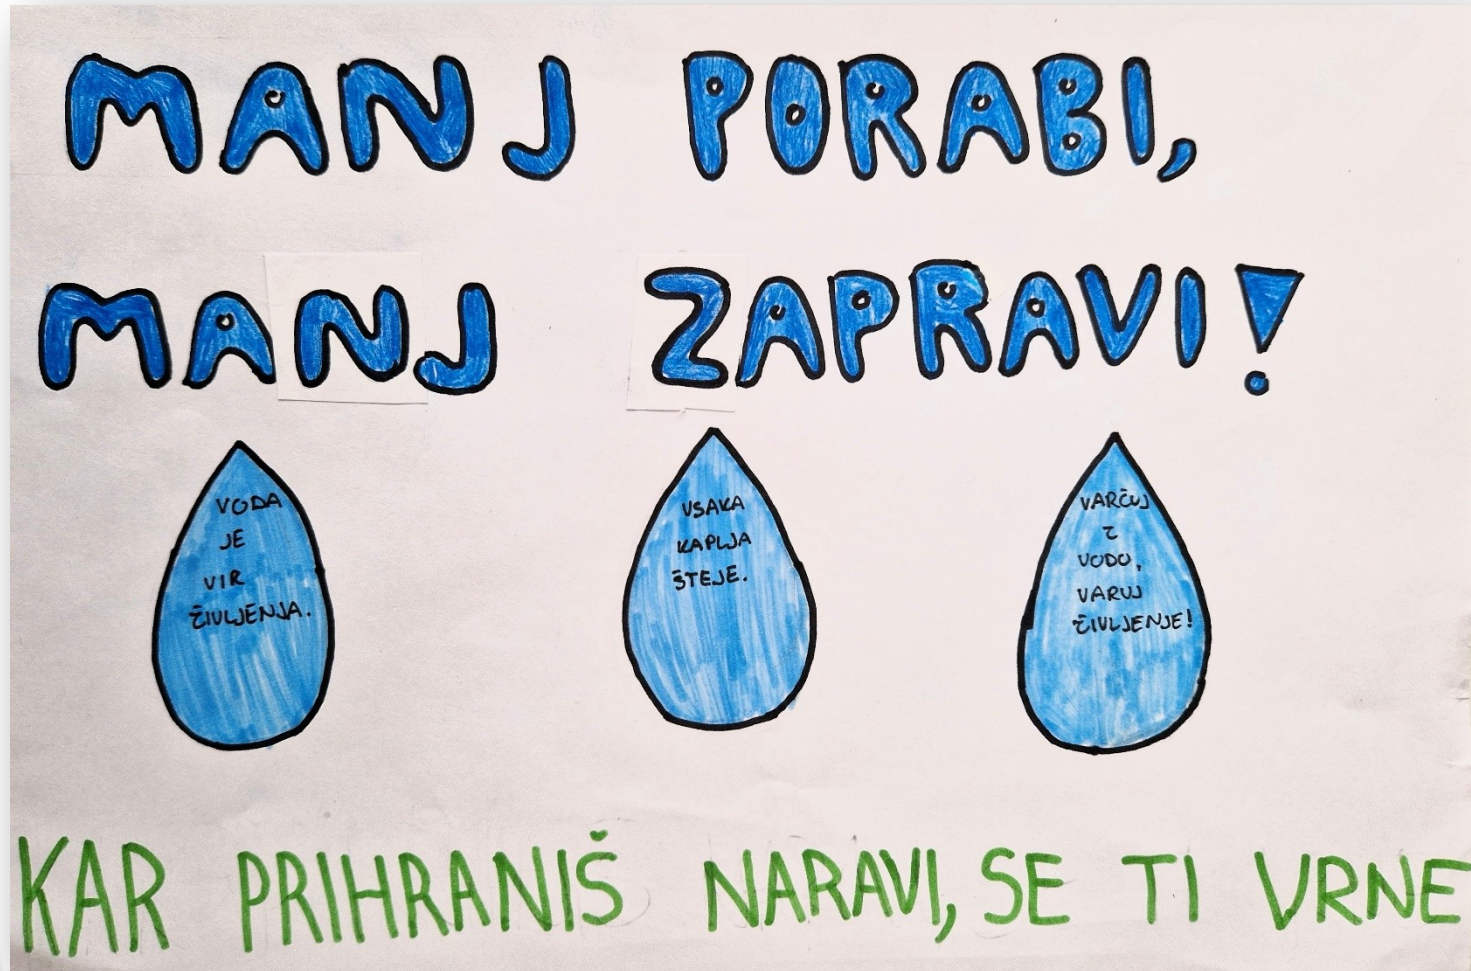 MANJ PORABI,
MANJ ZAPRAVI!
VODA
JE
VIR
ŽIVLJENJA.
VSAKA
KAPLJA
ŠTEJE.
VARČUJ
Z
VODO,
VARUJ
ŽIVLJENJE!
KAR PRIHRANIŠ NARAVI, SE TI VRNE